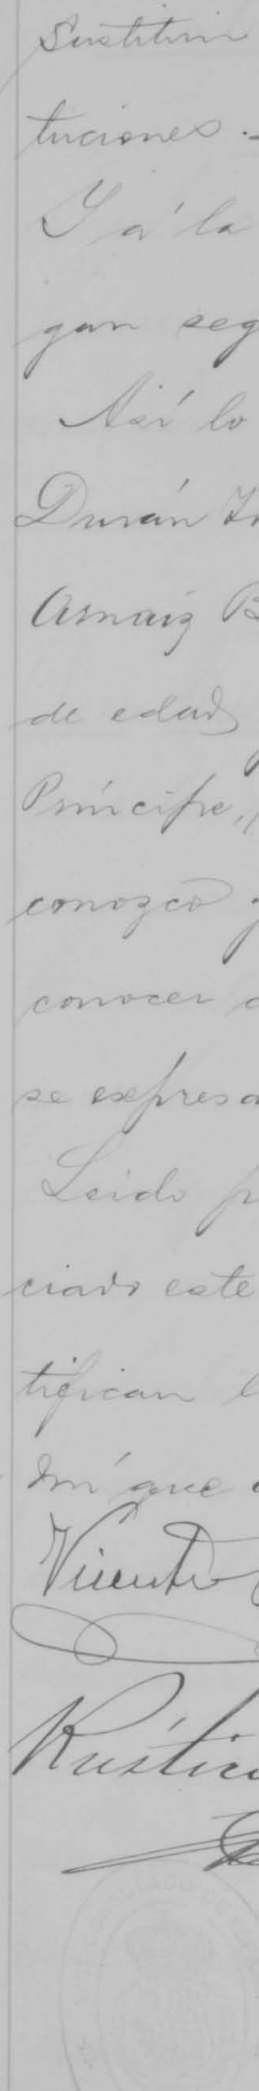 Sustituir
tuciones.-
Y á la
gan seg
Así lo
Durán
Arnaiz B
de edad
Príncipe,
conozco y
conocer
se expresa
Leido p
ciado este
tifican l
mí que
Vicente
Rústico
VICE CONSULADO DE